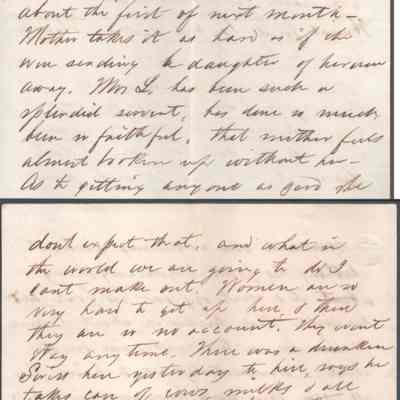 about the first of next month -
Mother takes it as hard as if she
were sending a daughter of her own
away. Mrs L. has been such a
splendid servant, has done so much
been so faithful, that mother feels
almost broken up without her -
As to getting anyone as good she
dont expect that, and what in
the world we are going to do I
cant make out. Women are so
very hard to get up here & then
they are so no account, they wont
stay any time. There was a drunken
Swiss here yesterday to hire, says he
takes care of cows, milks & all